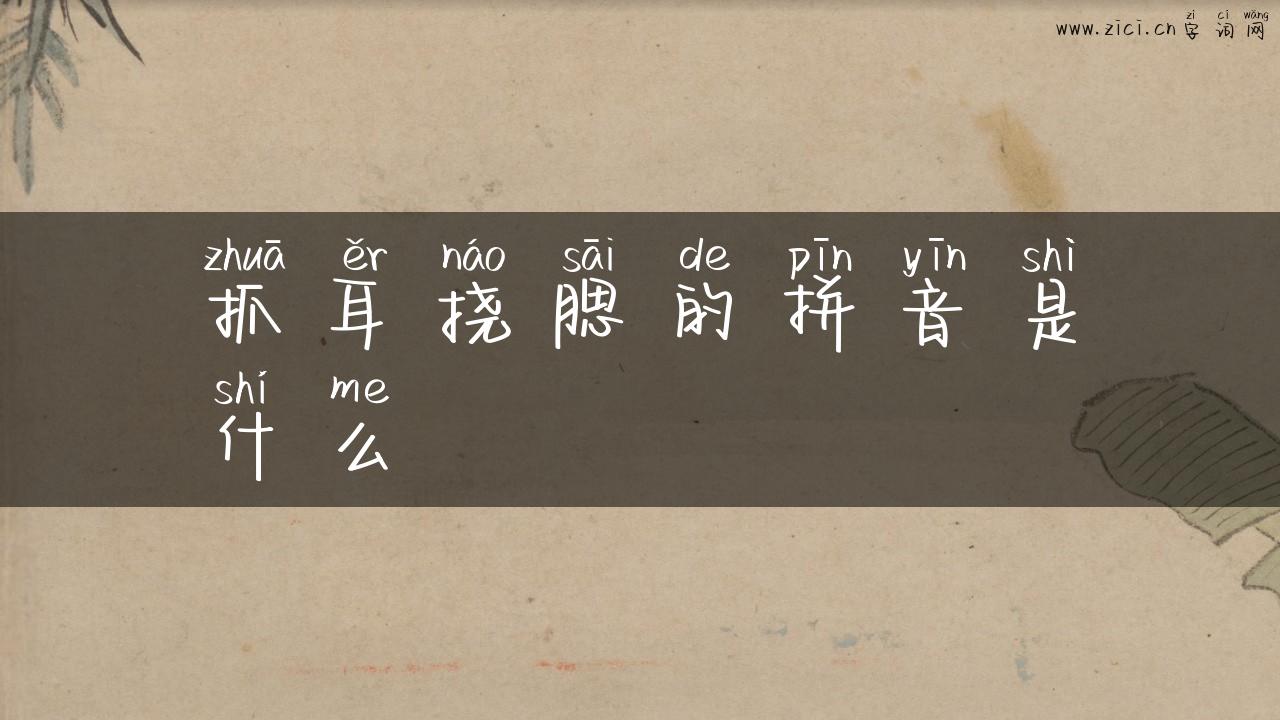 zì cí wǎng
www.zici.cn 字 词 网
zhuā ěr náo sāi de pīn yīn shì
抓 耳 挠 腮 的 拼 音 是
shí me
什 么